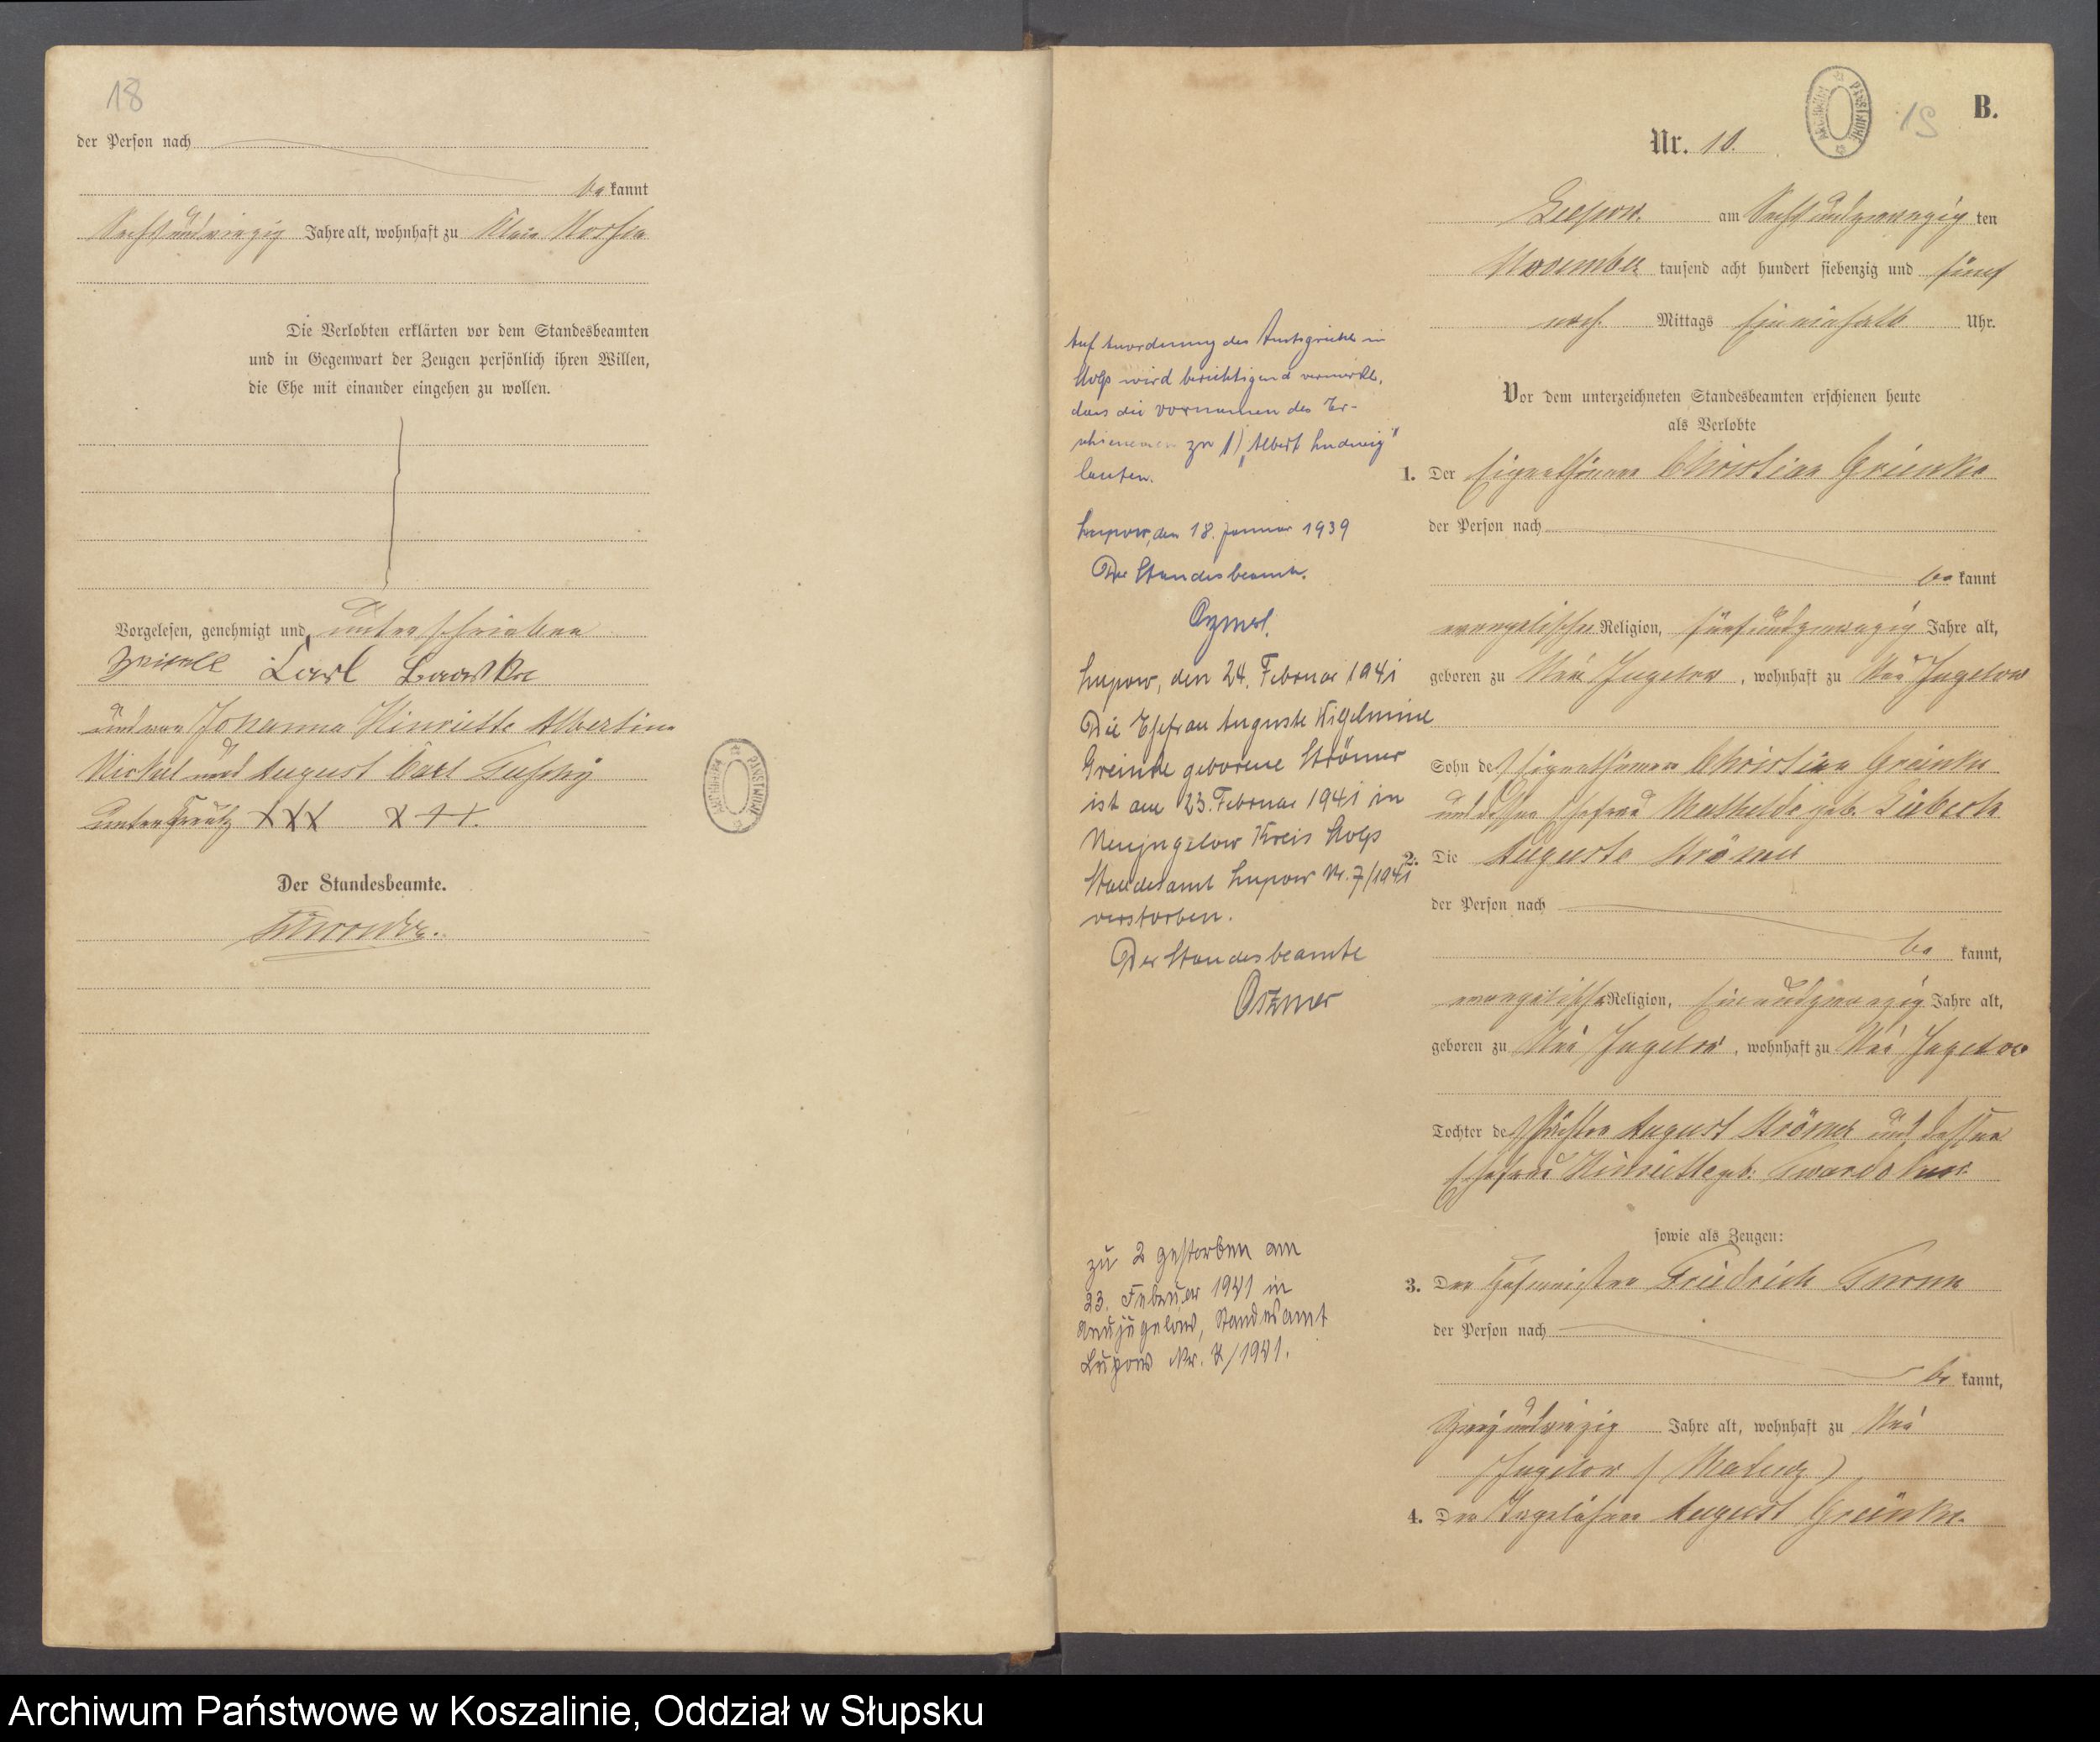 18
der Person nach
bekannt
Sechsundvierzig Jahre alt, wohnhaft zu Klein Nossin
Die Verlobten erklärten vor dem Standesbeamten
und in Gegenwart der Zeugen persönlich ihren Willen,
die Ehe mit einander eingehen zu wollen.
Vorgelesen, genehmigt und unterschrieben
Carl
und von Johanna Hinriette Albertine
Nickel und August Carl
unterkreuzt XXX XXX.
Der Standesbeamte.
ARCHIWUM PAŃSTWOWE
B.
ARCHIWUM PAŃSTWOWE
19
Nr. 10.
Lupow. am Sechsundzwanzigsten
November tausend acht hundert siebenzig und fünf
nach Mittags eineinhalb Uhr.
Vor dem unterzeichneten Standesbeamten erschienen heute
als Verlobte
1. Der Eigenthümer Christian Greinke
der Person nach
bekannt
evangelischer Religion, fünfundzwanzig Jahre alt,
geboren zu Neu Jugelow, wohnhaft zu Neu Jugelow
Sohn des Eigenthümers Christian Greinke
und dessen Ehefrau Mathilde geb.
2. Die Auguste Strömer
der Person nach
bekannt,
evangelischer Religion, einundzwanzig Jahre alt,
geboren zu Neu Jugelow, wohnhaft zu Neu Jugelow
Tochter des August Strömer und dessen
Ehefrau Hinriette geb.
sowie als Zeugen:
3. Der Hofmeister Friedrich
der Person nach
bekannt,
Zweiundvierzig Jahre alt, wohnhaft zu Neu
Jugelow
4. Der August Greinke.
Auf Anordnung des Amtsgerichts in
Stolp wird berichtigend vermerkt,
dass die Vornamen des Er-
schienenen zu 1) „Albert Ludwig"
lauten.
Lupow, den 18. Januar 1939
Der Standesbeamte.
Lupow, den 24. Februar 1941
Die Ehefrau Auguste Wilhelmine
Greinke geborene Strömer
ist am 23. Februar 1941 in
Neujugelow Kreis Stolp
Standesamt Lupow Nr. 7/1941
verstorben.
Der Standesbeamte
zu 2 gestorben am
23. Februar 1941 in
Neujugelow, Standesamt
Lupow Nr. 7/1941.
Archiwum Państwowe w Koszalinie, Oddział w Słupsku